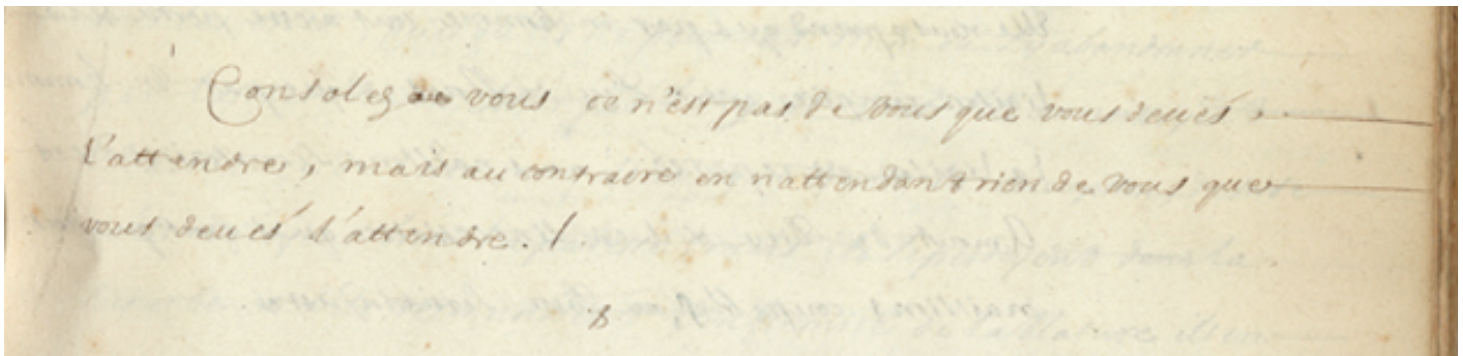 Consolez vous ce n'est pas de vous que vous deués
l'attendre, mais au contraire en n'attendant rien de vous que
vous deués l'attendre. /.